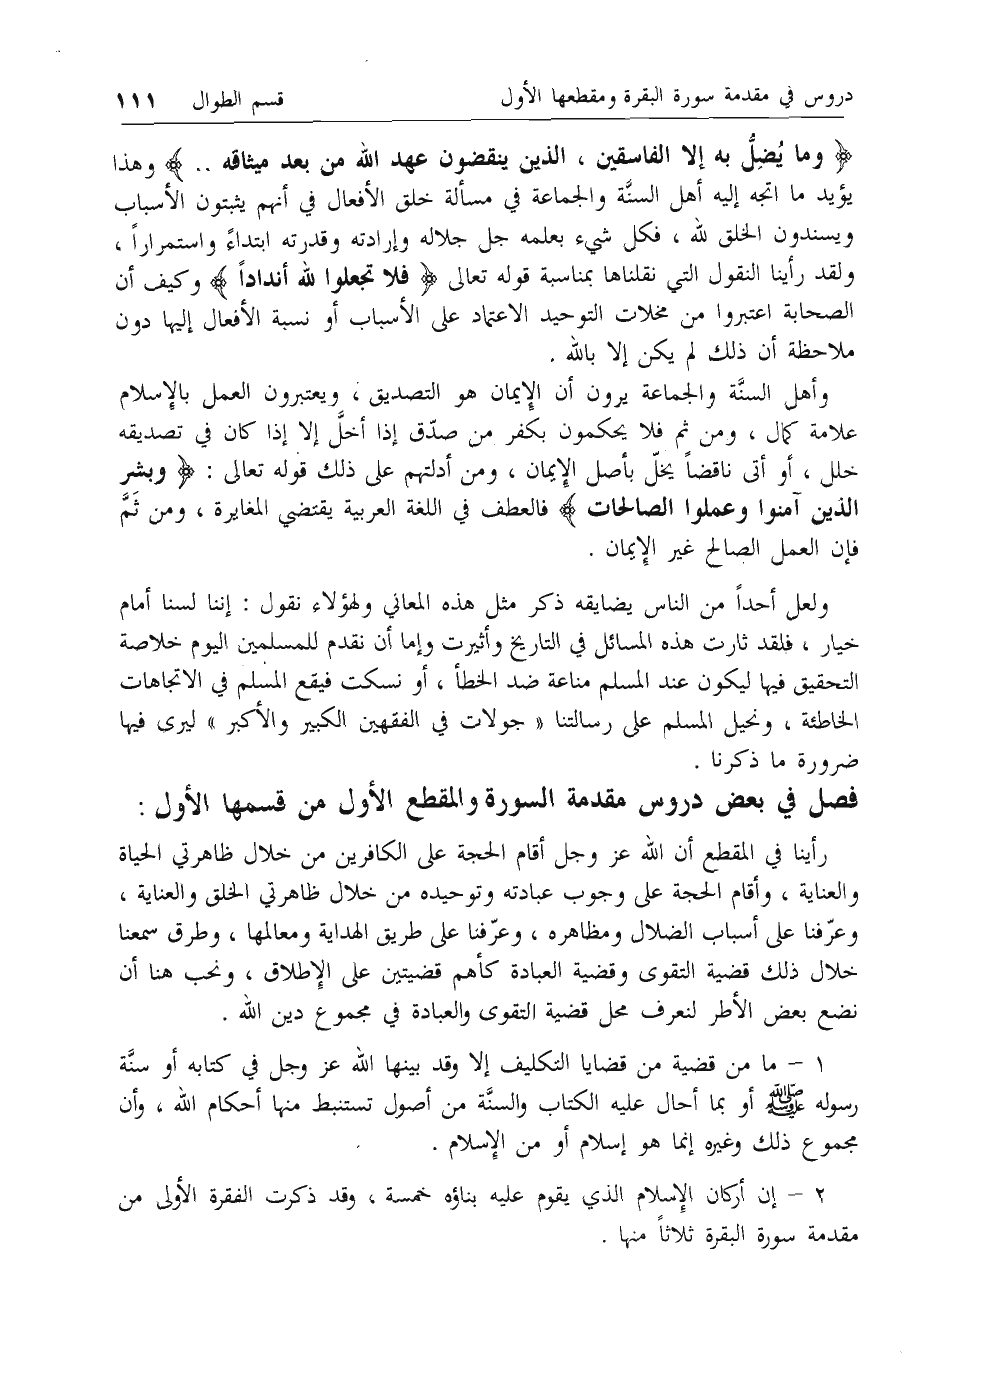 دروس في مقدمة سورة البقرة ومقطعها الأول قسم الطوال ١١١
﴿ وما يُضِلُّ به إلا الفاسقين ، الذين ينقضون عهد الله من بعد ميثاقه .. ﴾ وهذا
يؤيد ما اتجه إليه أهل السنَّة والجماعة في مسألة خلق الأفعال في أنهم يثبتون الأسباب
ويسندون الخلق لله ، فكل شيء بعلمه جل جلاله وإرادته وقدرته ابتداءً واستمراراً ،
ولقد رأينا النقول التي نقلناها بمناسبة قوله تعالى ﴿ فلا تجعلوا لله أنداداً ﴾ وكيف أن
الصحابة اعتبروا من مخلات التوحيد الاعتماد على الأسباب أو نسبة الأفعال إليها دون
ملاحظة أن ذلك لم يكن إلا بالله .
وأهل السنَّة والجماعة يرون أن الإيمان هو التصديق ، ويعتبرون العمل بالإسلام
علامة كمال ، ومن ثم فلا يحكمون بكفر من صدّق إذا أخلَّ إلا إذا كان في تصديقه
خلل ، أو أتى ناقضاً يخلّ بأصل الإيمان ، ومن أدلتهم على ذلك قوله تعالى : ﴿ وبشر
الذين آمنوا وعملوا الصالحات ﴾ فالعطف في اللغة العربية يقتضي المغايرة ، ومن ثَمَّ
فإن العمل الصالح غير الإيمان .
ولعل أحداً من الناس يضايقه ذكر مثل هذه المعاني ولهؤلاء نقول : إننا لسنا أمام
خيار ، فلقد ثارت هذه المسائل في التاريخ وأثيرت وإما أن نقدم للمسلمين اليوم خلاصة
التحقيق فيها ليكون عند المسلم مناعة ضد الخطأ ، أو نسكت فيقع المسلم في الاتجاهات
الخاطئة ، ونحيل المسلم على رسالتنا « جولات في الفقهين الكبير والأكبر » ليرى فيها
ضرورة ما ذكرنا .
فصل في بعض دروس مقدمة السورة والمقطع الأول من قسمها الأول :
رأينا في المقطع أن الله عز وجل أقام الحجة على الكافرين من خلال ظاهرتي الحياة
والعناية ، وأقام الحجة على وجوب عبادته وتوحيده من خلال ظاهرتي الخلق والعناية ،
وعرّفنا على أسباب الضلال ومظاهره ، وعرّفنا على طريق الهداية ومعالمها ، وطرق سمعنا
خلال ذلك قضية التقوى وقضية العبادة كأهم قضيتين على الإطلاق ، ونحب هنا أن
نضع بعض الأطر لنعرف محل قضية التقوى والعبادة في مجموع دين الله .
١ – ما من قضية من قضايا التكليف إلا وقد بينها الله عز وجل في كتابه أو سنَّة
رسوله ﷺ أو بما أحال عليه الكتاب والسنَّة من أصول تستنبط منها أحكام الله ، وأن
مجموع ذلك وغيره إنما هو إسلام أو من الإسلام .
٢ – إن أركان الإسلام الذي يقوم عليه بناؤه خمسة ، وقد ذكرت الفقرة الأولى من
مقدمة سورة البقرة ثلاثاً منها .